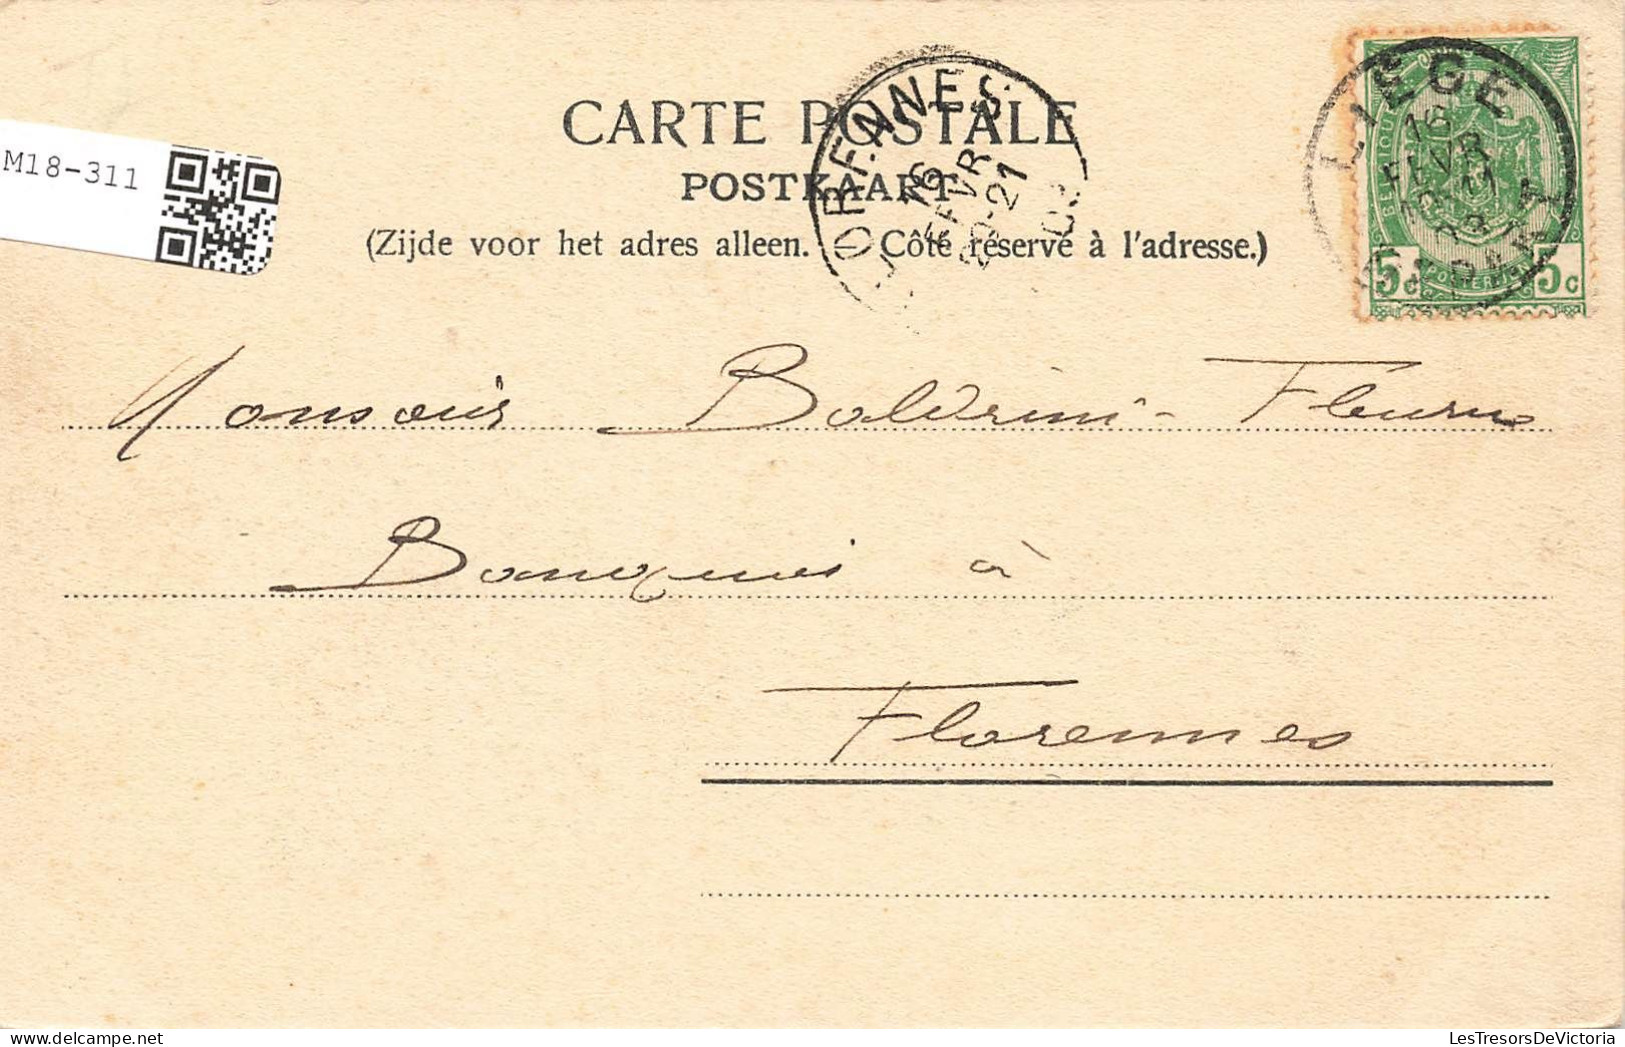 CARTE POSTALE
POSTKAART
(Zijde voor het adres alleen. Côté réservé à l'adresse.)
M18-311
FLORENNES
16
FEVR
20-21
LIEGE
16
FEVR
10-11
BELGIQUE
5c 5c
Monsieur Boldrini-Fleurus
Banquier à
Florennes
LesTresorsDeVictoria